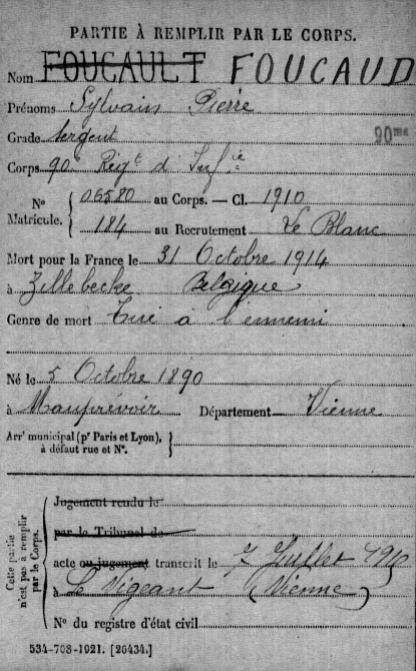 PARTIE À REMPLIR PAR LE CORPS.
Nom FOUCAULT FOUCAUD
Prénoms Sylvain Pierre
Grade Sergent 90me
Corps 90e Régt d'Infie
No Matricule. { 06580 au Corps. — Cl. 1910
184 au Recrutement Le Blanc
Mort pour la France le 31 Octobre 1914
à Zillebecke Belgique
Genre de mort Tué à l'ennemi
Né le 5 Octobre 1890
à Mauprévoir Département Vienne
Arrt municipal (pr Paris et Lyon), à défaut rue et No. }
Cette partie n'est pas à remplir par le Corps.
Jugement rendu le
par le Tribunal de
acte ou jugement transcrit le 7 Juillet
à Le Vigeant (Vienne)
No du registre d'état civil
534-708-1921. [26434.]